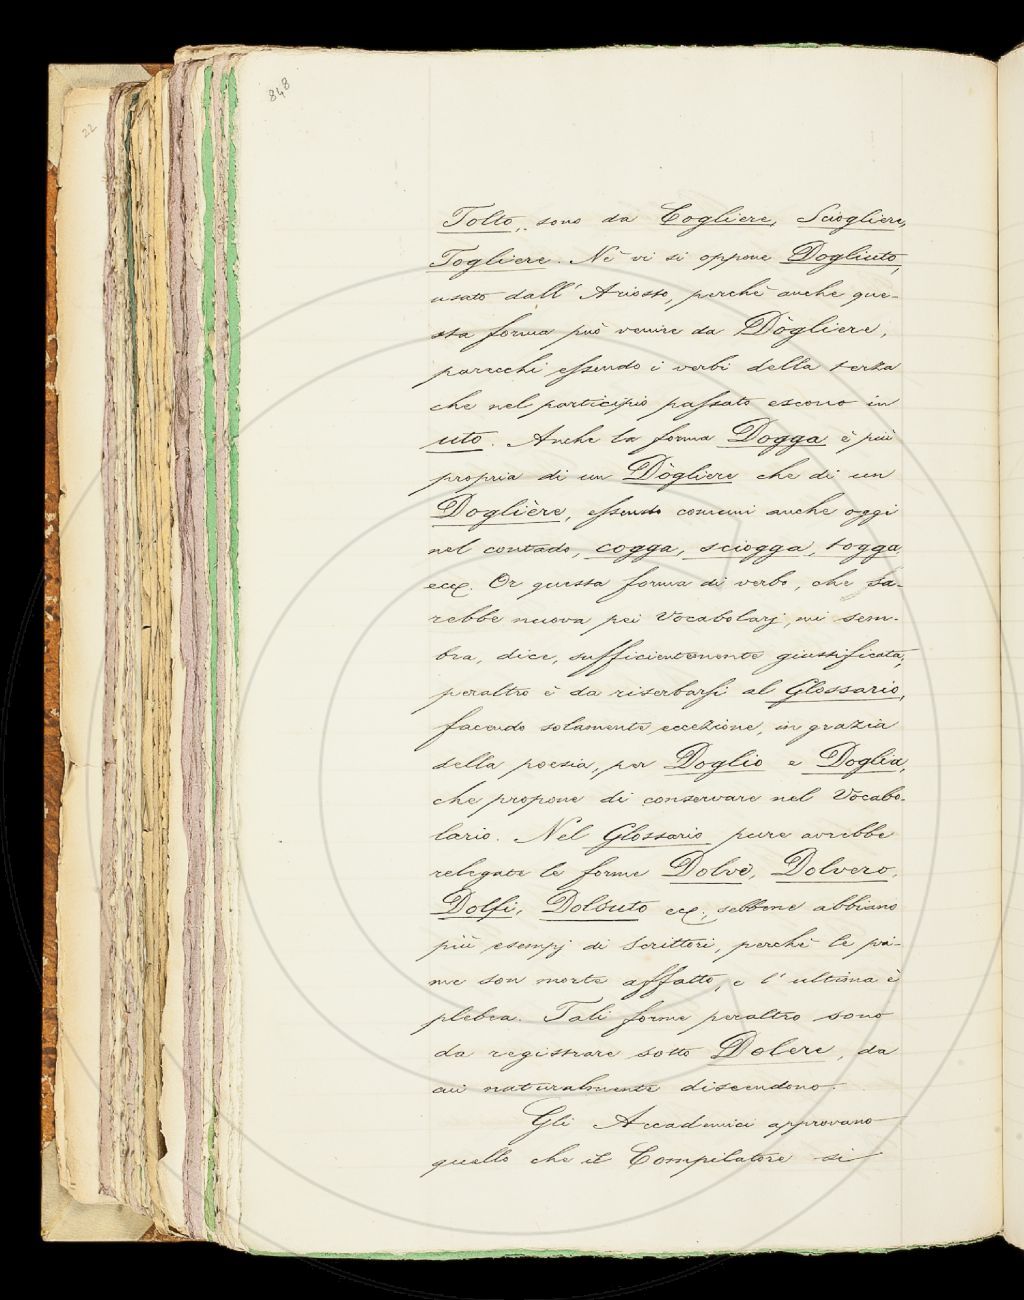 848
22
Tolto, sono da Cogliere, Sciogliere,
Togliere. Nè vi si oppone Dogliuto,
usato dall' Ariosto, perchè anche que-
sta forma può venire da Dògliere,
parecchi essendo i verbi della terza
che nel participio passato escono in
uto. Anche la forma Dogga è più
propria di un Dògliere che di un
Doglière, essendo comuni anche oggi
nel contado, cogga, sciogga, togga
ecc. Or questa forma di verbo, che sa-
rebbe nuova pei Vocabolarj, mi sem-
bra, dice, sufficientemente giustificata,
peraltro è da riserbarsi al Glossario,
facendo solamente eccezione, in grazia
della poesia, per Doglio e Doglia,
che propone di conservare nel Vocabo-
lario. Nel Glossario pure avrebbe
relegate le forme Dolvè, Dolvero,
Dolfi, Dolsuto ecc., sebbene abbiano
più esempj di Scrittori, perchè le pri-
me son morte affatto, e l' ultima è
plebea. Tali forme peraltro sono
da registrare sotto Dolere, da
cui naturalmente discendono.
Gli Accademici approvano
quello che il Compilatore si